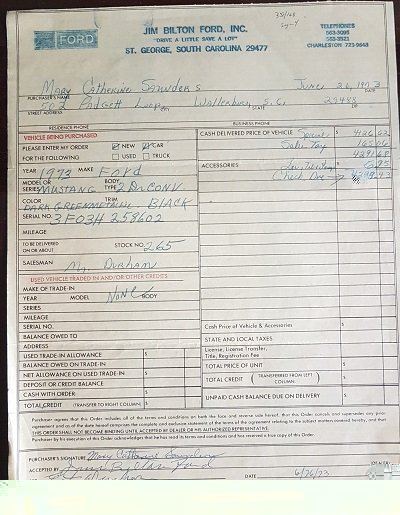 351/4B
FORD
JIM BILTON FORD, INC.
"DRIVE A LITTLE SAVE A LOT"
ST. GEORGE, SOUTH CAROLINA 29477
TELEPHONES
563-3095
563-3521
CHARLESTON 723-9648
Mary Catherine Saunders June 26, 1973
PURCHASER'S NAME DATE
502 Padgett Loop Walterboro S.C. 29488
STREET ADDRESS CITY STATE ZIP
RESIDENCE PHONE BUSINESS PHONE
VEHICLE BEING PURCHASED
PLEASE ENTER MY ORDER NEW CAR
FOR THE FOLLOWING USED TRUCK
YEAR 1973 MAKE Ford
MODEL OR SERIES MUSTANG BODY TYPE 2 Dr. CONV.
COLOR DARK GREEN METALLIC TRIM BLACK
SERIAL NO. 3F03H 258602
MILEAGE
TO BE DELIVERED ON OR ABOUT STOCK NO. 265
SALESMAN Durham
USED VEHICLE TRADED IN AND/OR OTHER CREDITS
MAKE OF TRADE-IN
YEAR MODEL None BODY
SERIES
MILEAGE
SERIAL NO.
BALANCE OWED TO
ADDRESS
USED TRADE-IN ALLOWANCE $
BALANCE OWED ON TRADE-IN
NET ALLOWANCE ON USED TRADE-IN $
DEPOSIT OR CREDIT BALANCE
CASH WITH ORDER
TOTAL CREDIT (TRANSFER TO RIGHT COLUMN) $
CASH DELIVERED PRICE OF VEHICLE $
Sales Tax 165 06
ACCESSORIES
Check Due
Cash Price of Vehicle & Accessories $
STATE AND LOCAL TAXES
License, License Transfer,
Title, Registration Fee
TOTAL PRICE OF UNIT $
TOTAL CREDIT (TRANSFERRED FROM LEFT COLUMN)
UNPAID CASH BALANCE DUE ON DELIVERY $
Purchaser agrees that this Order includes all of the terms and conditions on both the face and reverse side hereof, that this Order cancels and supersedes any prior
agreement and as of the date hereof comprises the complete and exclusive statement of the terms of the agreement relating to the subject matters covered hereby, and that
THIS ORDER SHALL NOT BECOME BINDING UNTIL ACCEPTED BY DEALER OR HIS AUTHORIZED REPRESENTATIVE.
Purchaser by his execution of this Order acknowledges that he has read its terms and conditions and has received a true copy of this Order.
PURCHASER'S SIGNATURE Mary Catherine
ACCEPTED BY
DATE 6/26/73